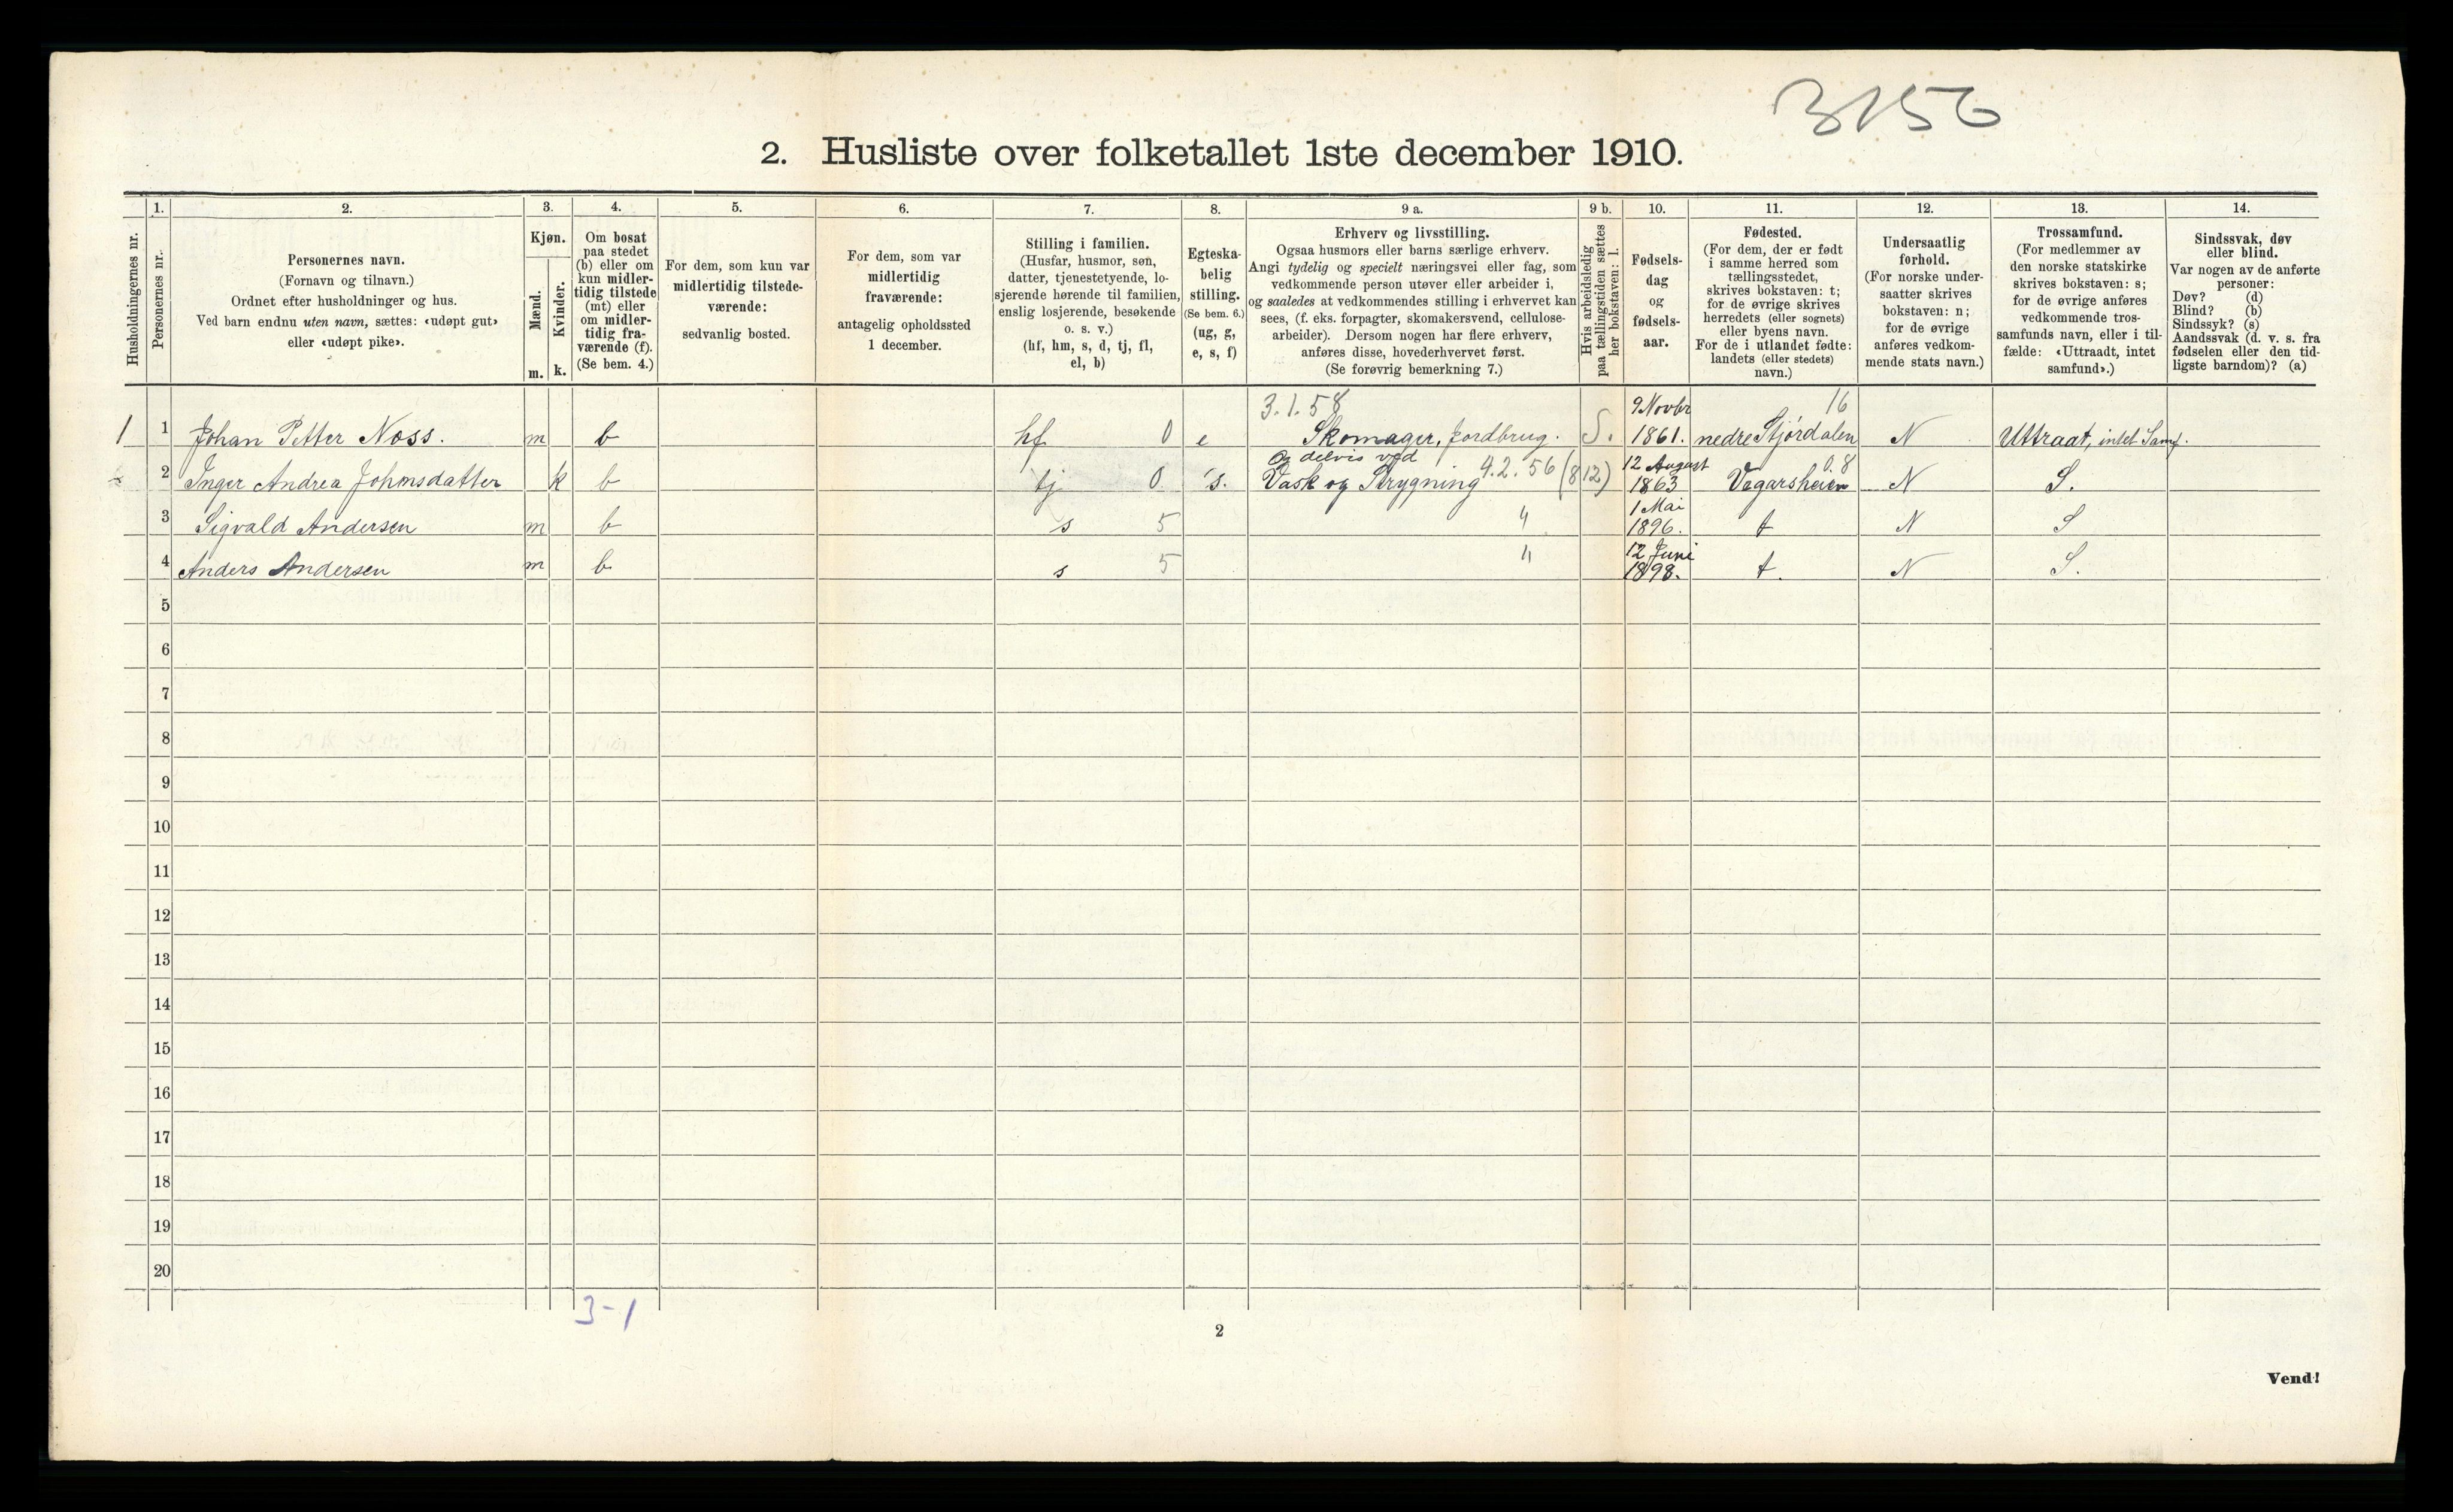 3156
2. Husliste over folketallet 1ste december 1910.
Husholdningernes nr.
1.
Personernes nr.
2.
Personernes navn.
(Fornavn og tilnavn.)
Ordnet efter husholdninger og hus.
Ved barn endnu uten navn, sættes: «udøpt gut»
eller «udøpt pike».
3.
Kjøn.
Mænd.
Kvinder.
m.
k.
4.
Om bosat
paa stedet
(b) eller om
kun midler-
tidig tilstede
(mt) eller
om midler-
tidig fra-
værende (f).
(Se bem. 4.)
5.
For dem, som kun var
midlertidig tilstede-
værende:
sedvanlig bosted.
6.
For dem, som var
midlertidig
fraværende:
antagelig opholdssted
1 december.
7.
Stilling i familien.
(Husfar, husmor, søn,
datter, tjenestetyende, lo-
sjerende hørende til familien,
enslig losjerende, besøkende
o. s. v.)
(hf, hm, s, d, tj, fl,
el, b)
8.
Egteska-
belig
stilling.
(Se bem. 6.)
(ug, g,
e, s, f)
9 a.
Erhverv og livsstilling.
Ogsaa husmors eller barns særlige erhverv.
Angi tydelig og specielt næringsvei eller fag, som
vedkommende person utøver eller arbeider i,
og saaledes at vedkommendes stilling i erhvervet kan
sees, (f. eks. forpagter, skomakersvend, cellulose-
arbeider). Dersom nogen har flere erhverv,
anføres disse, hovederhvervet først.
(Se forøvrig bemerkning 7.)
9 b.
Hvis arbeidsledig
paa tællingstiden sættes
her bokstaven: l.
10.
Fødsels-
dag
og
fødsels-
aar.
11.
Fødested.
(For dem, der er født
i samme herred som
tællingsstedet,
skrives bokstaven: t;
for de øvrige skrives
herredets (eller sognets)
eller byens navn.
For de i utlandet fødte:
landets (eller stedets)
navn.)
12.
Undersaatlig
forhold.
(For norske under-
saatter skrives
bokstaven: n;
for de øvrige
anføres vedkom-
mende stats navn.)
13.
Trossamfund.
(For medlemmer av
den norske statskirke
skrives bokstaven: s;
for de øvrige anføres
vedkommende tros-
samfunds navn, eller i til-
fælde: «Uttraadt, intet
samfund».)
14.
Sindssvak, døv
eller blind.
Var nogen av de anførte
personer:
Døv? (d)
Blind? (b)
Sindssyk? (s)
Aandssvak (d. v. s. fra
fødselen eller den tid-
ligste barndom)? (a)
3.1.58 9 Novbr 16
1 1 Johan Petter Noss. m b hf 0 e Skomager, Jordbrug. S. 1861. nedre Stjørdalen N Uttraat, intet Samf.
og delvis ved 4.2.56 (812) 12 August 0.8
2 Inger Andrea Johnsdatter k b tj 0 s. Vask og Strygning 1863 Vegarsheien N S.
1 Mai
3 Sigvald Andersen m b s 5 " 1896. t N S
12 Juni
4 Anders Andersen m b s 5 " 1898. t. N S.
5
6
7
8
9
10
11
12
13
14
15
16
17
18
19
20
3-1
2
Vend!